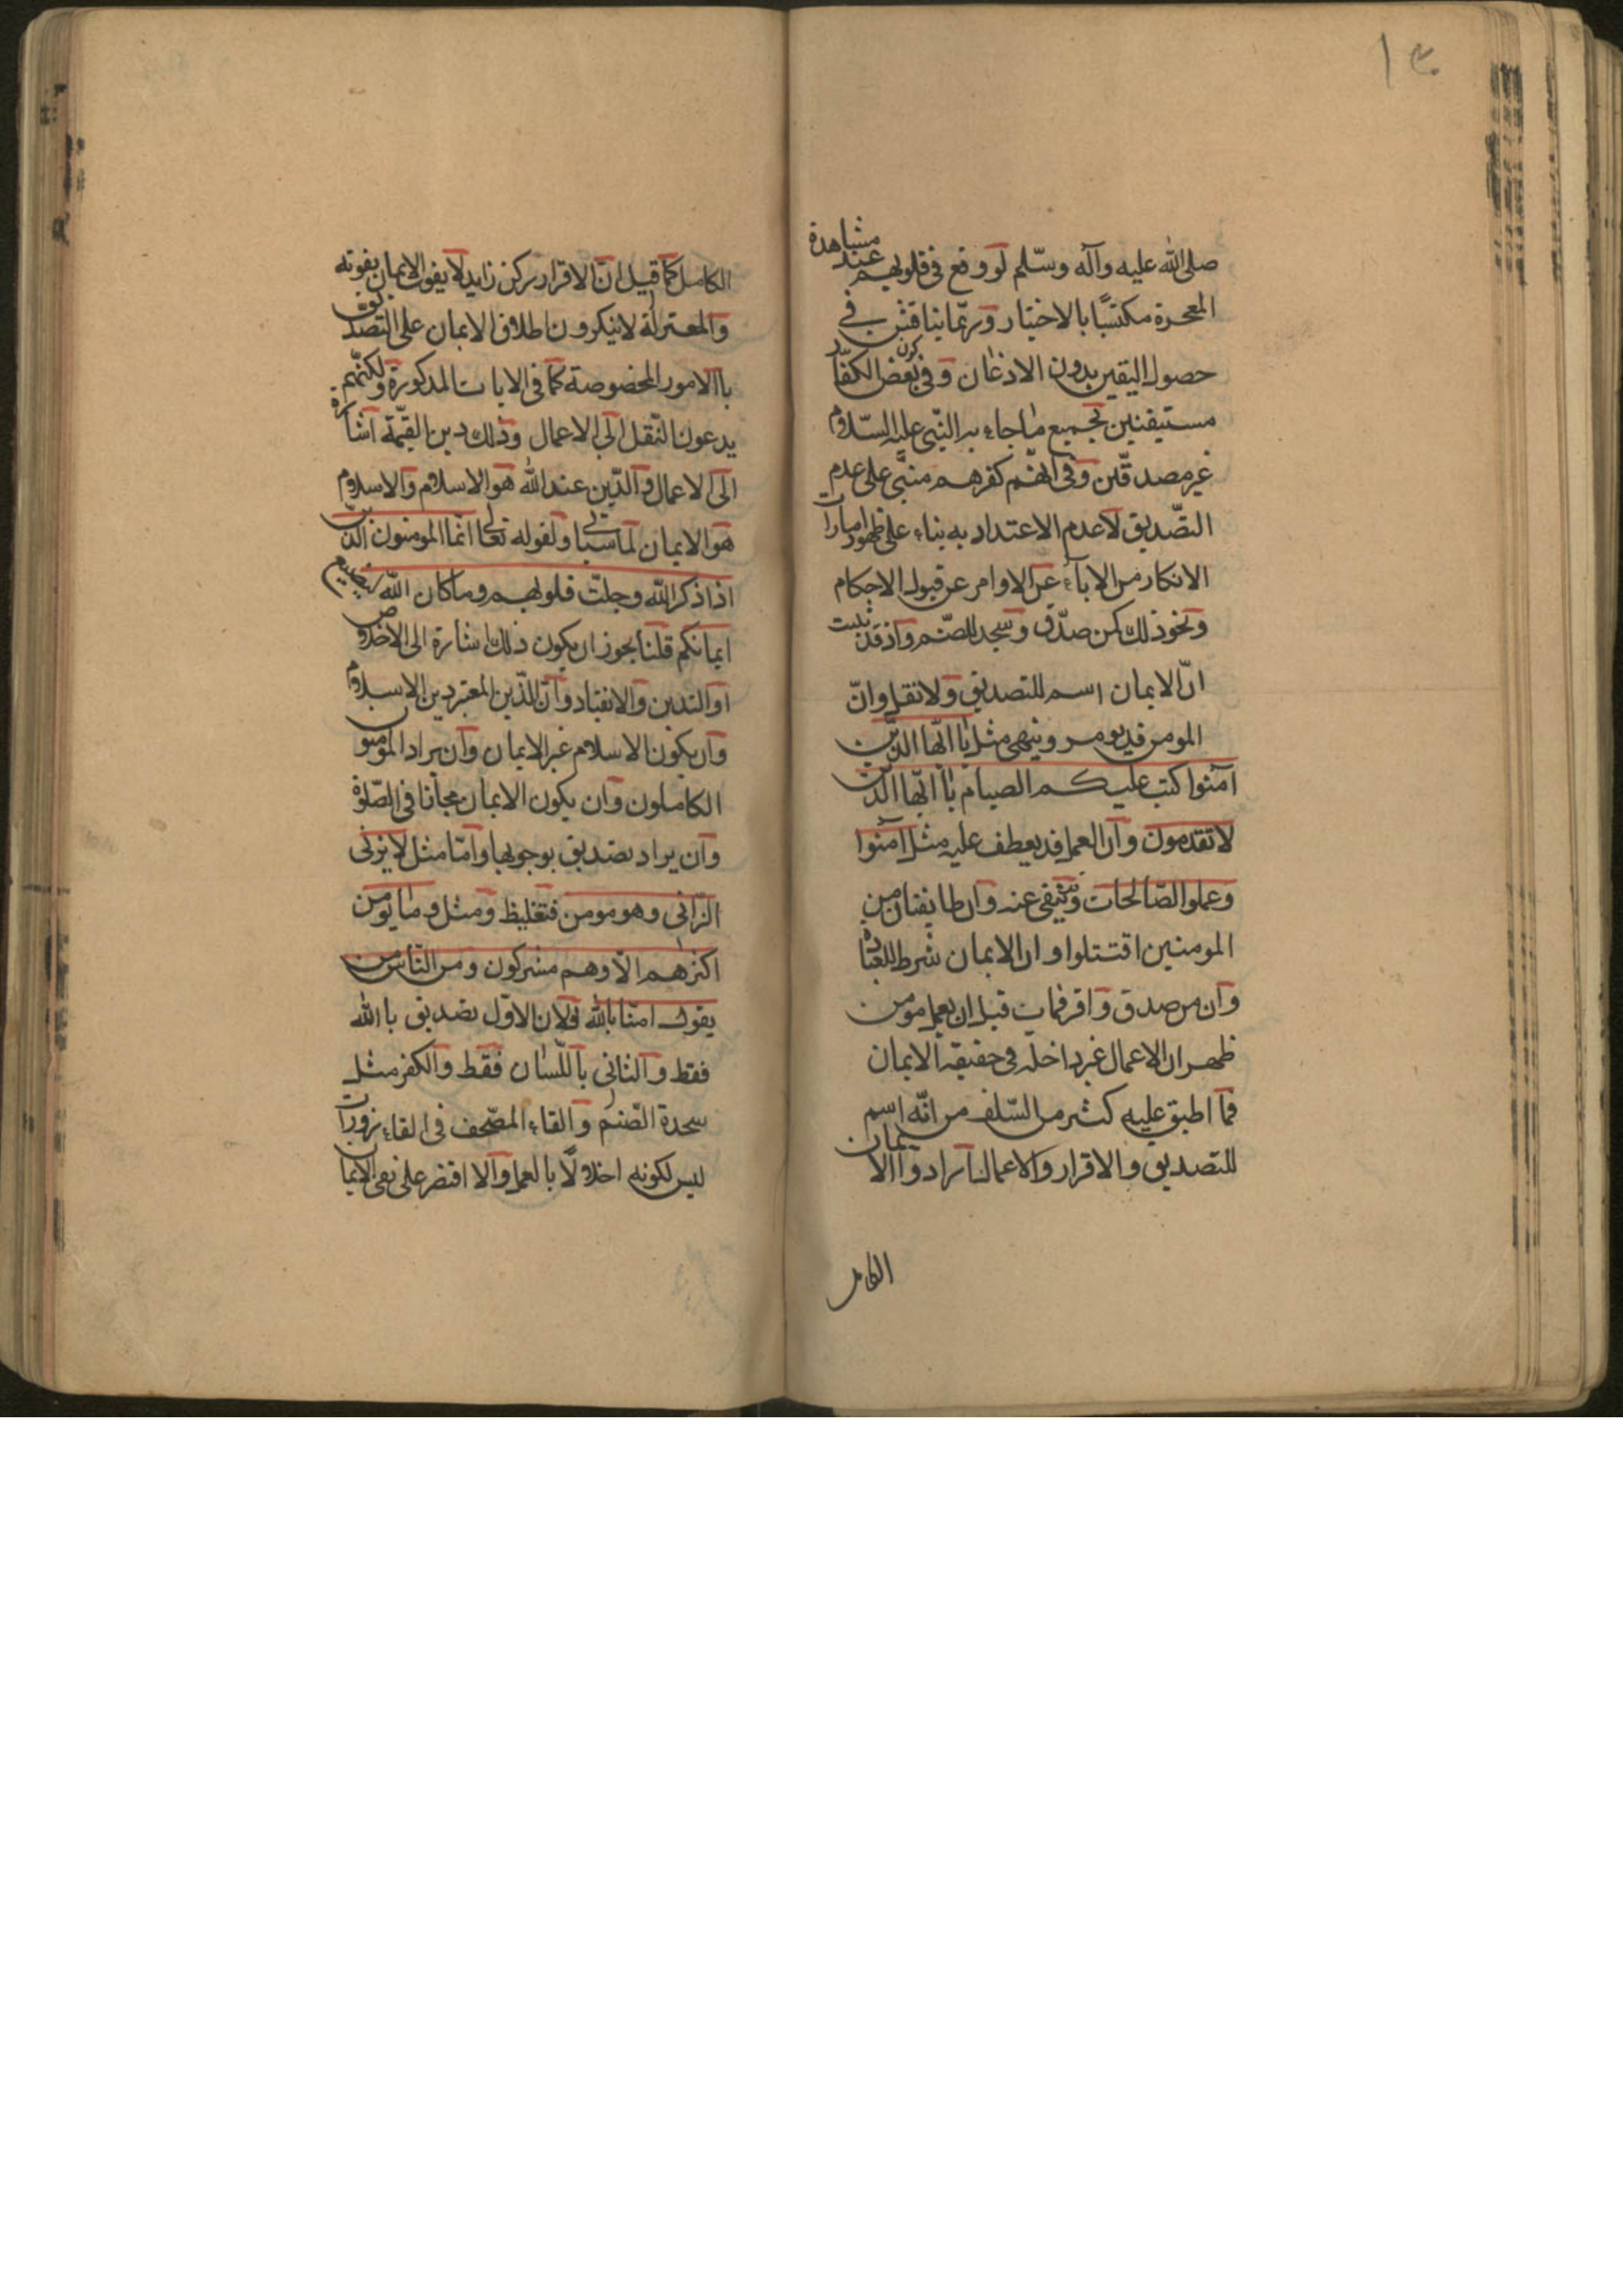 صلى الله عليه وآله وسلّم لو وقع فى قلوبهم عند مشاهدة
المعجزة مكتسبًا بالاختيار وربّما يناقش في
حصول اليقين بدون الاذعان وفى كون بعض الكفّار
مستيقنين بجميع ما جاء به النّبى عليه السّلام
غير مصدقّين وفى انّهم كفرهم مبنّى على عدم
التصّديق لا عدم الاعتداد به بناء على ظهور امارات
الانكار من الاباء عن الاوامر عن قبول الاحكام
ونحو ذلك كمن صدّق وسجد للصّنم واذ قد ثبت
انّ الايمان اسم للتصديق ولا نقل وانّ
المومن قد يومر وينهى مثل يا ايّها الذّين
آمنوا كتب عليكم الصيام يا ايّها الذّين
لا تقدمون وان العمل قد يعطف عليه مثل آمنوا
وعملوا الصّالحات وينفى عنه وان طايفتان من
المومنين اقتتلوا وان الايمان شرط للعبادة
وان من صدق واقر فمات قبل ان يعمل مومن
ظهر ان الاعمال غير داخله فى حقيقة الايمان
فما اطبق عليه كثير من السّلف من انّه اسم
للتصديق والاقرار والاعمال ارادوا الايمان
الكامل
الكامل كما قيل انّ الاقرار ركن زايد لا يفوت الايمان بفوته
والمعتزلة لا ينكرون اطلاق الايمان على التصديق
باالامور المخصوصة كما فى الايات المذكورة ولكنّهم
يدعون النّقل الى الاعمال وذلك دين القيّمة اشارة
الى الاعمال والدّين عند الله هو الاسلام والاسلام
هو الايمان لما سياتى ولقوله تعالى انّما المومنون الذّين
اذا ذكر الله وجلت قلوبهم وما كان الله ليضيع
ايمانكم قلنا يجوز ان يكون ذلك اشارة الى الاخلاص
او التدين والانقياد وان الدّين المعتبر دين الاسلام
وان يكون الاسلام غير الايمان وان يراد المومنون
الكاملون وان يكون الايمان مجازا فى الصّلوة
وان يراد تصديق بوجوبها وامّا مثل لا يزنى
الزّانى وهو مومن فتغليظ ومثل وما يومن
اكثرهم الّا وهم مشركون ومن النّاس من
يقول امنّا بالله فلان الاوّل تصديق باالله
فقط والثانى باللّسان فقط والكفر مثل
سجدة الصّنم والقاء المصّحف فى القاذورات
ليس لكونه اخلالًا بالعمل والا اقتصر على نفى الايمان